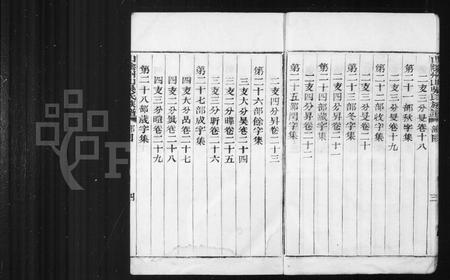 二支三分旻卷十八
第二十一部秋字集
二支三分旻卷十九
第二十二部收字集
二支三分旻卷二十
第二十三部冬字集
二支四分昇卷二十一
第二十四部藏字集
二支四分昇卷二十二
第二十五部閏字集
二支四分昇卷二十三
第二十六部餘字集
三支大分昊卷二十四
三支二分暉卷二十五
三支三分昕卷二十六
第二十七部成字集
四支大分卷二十七
四支二分卷二十八
四支三分暄卷二十九
第二十八部歲字集
部目
四